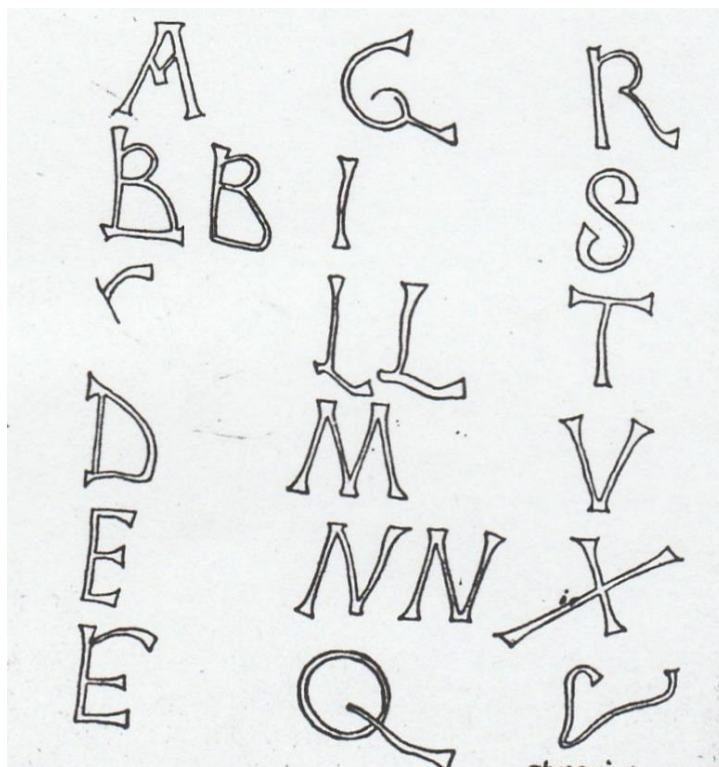 A
B B
D
E
E
G
I
L L
M
N N
Q
R
S
T
V
X